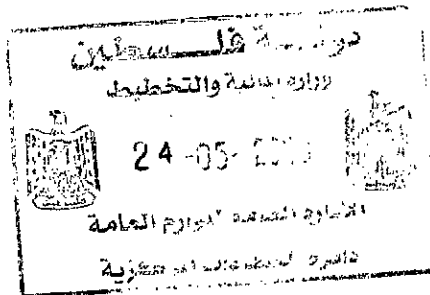 دولة فلسطين
وزارة المالية والتخطيط
24 -05-
الإدارة العامة للوازم العامة
دائرة المركزية